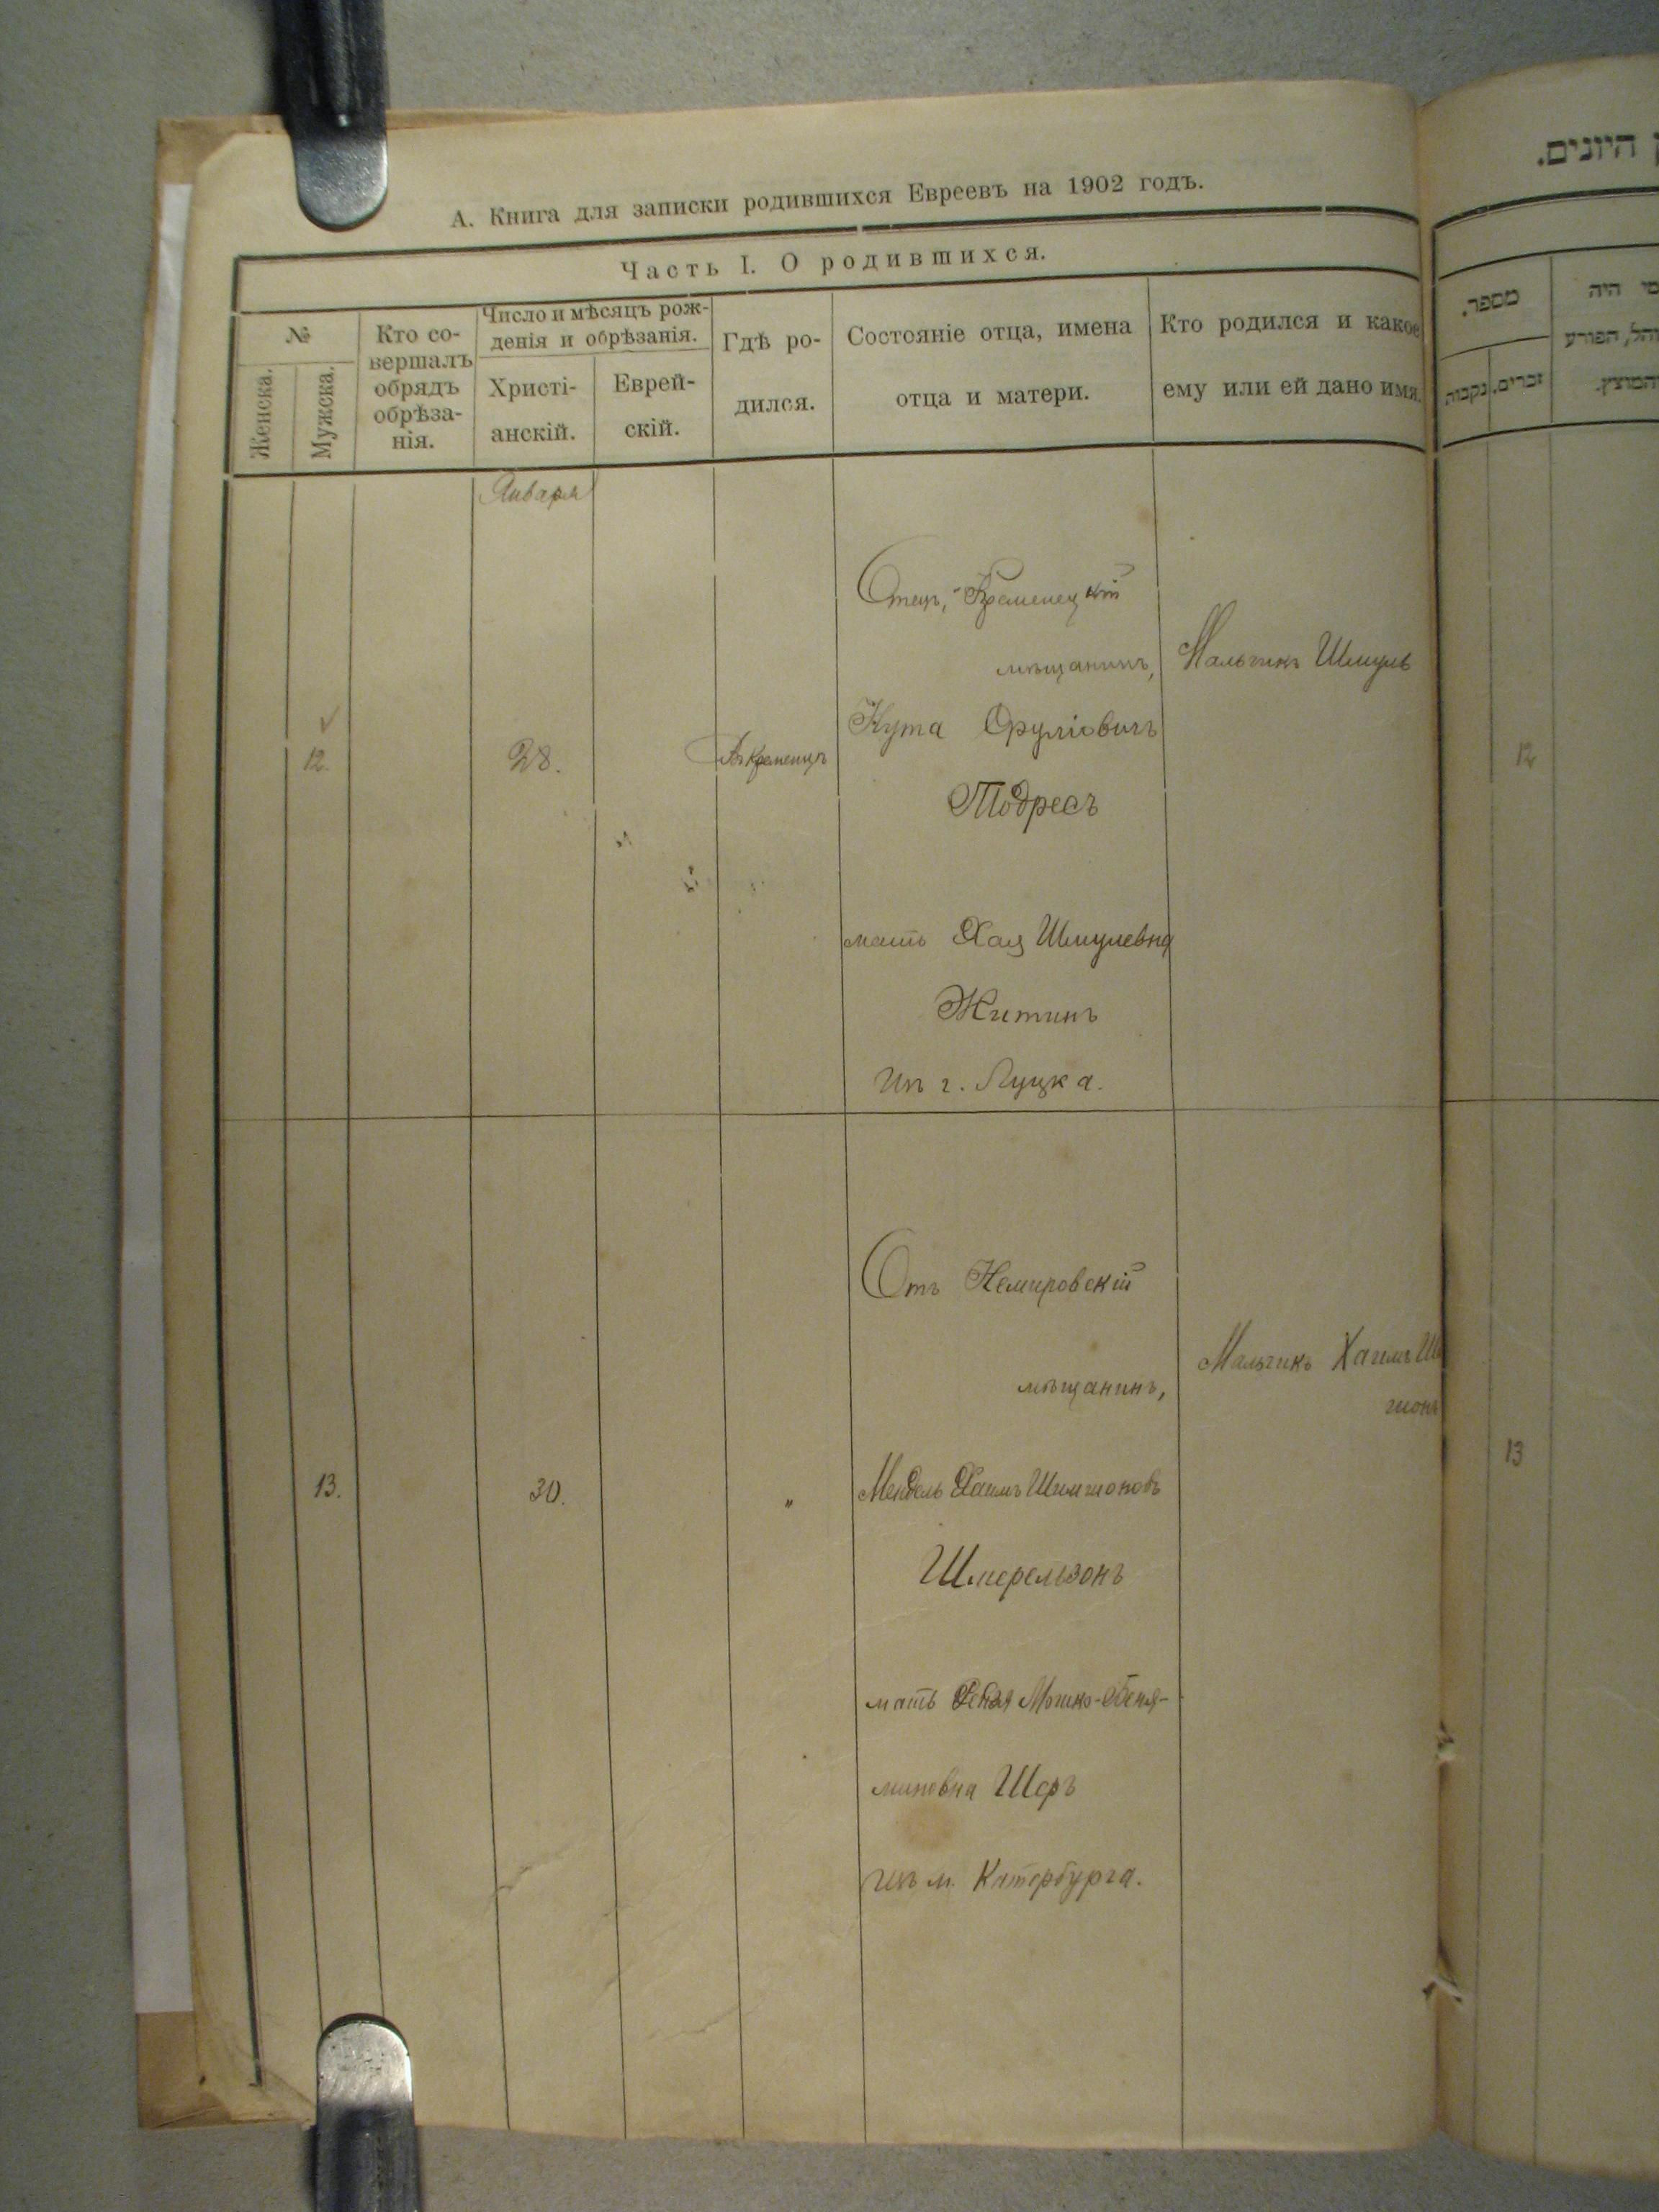 А. Книга для записки родившихся Евреевъ на 1902 годъ.
Часть I. О родившихся.
№
Женска.
Мужска.
Кто со-
вершалъ
обрядъ
обрѣза-
нія.
Число и мѣсяцъ рож-
денія и обрѣзанія.
Христі-
анскій.
Еврей-
скій.
Гдѣ ро-
дился.
Состояніе отца, имена
отца и матери.
Кто родился и какое
ему или ей дано имя.
Января
12.
28.
Въ Кременцѣ
Отецъ, Кременецкій
мѣщанинъ,
Кута Сруліовичъ
Тодресъ
мать Хая Шмулевна
Житинъ
изъ г. Луцка.
Мальчикъ Шмуль
13.
30.
"
Отъ Немировскій
мѣщанинъ,
Мендель Хаимъ Шимшоновъ
Шмерельзонъ
мать Мошко-Беня-
миновна Шеръ
изъ м. Катербурга.
Мальчикъ Хаимъ Ши
шонъ
היונים.
מספר.
זכרים.
נקבות
היה
הפורע
והמוצץ.
12
13